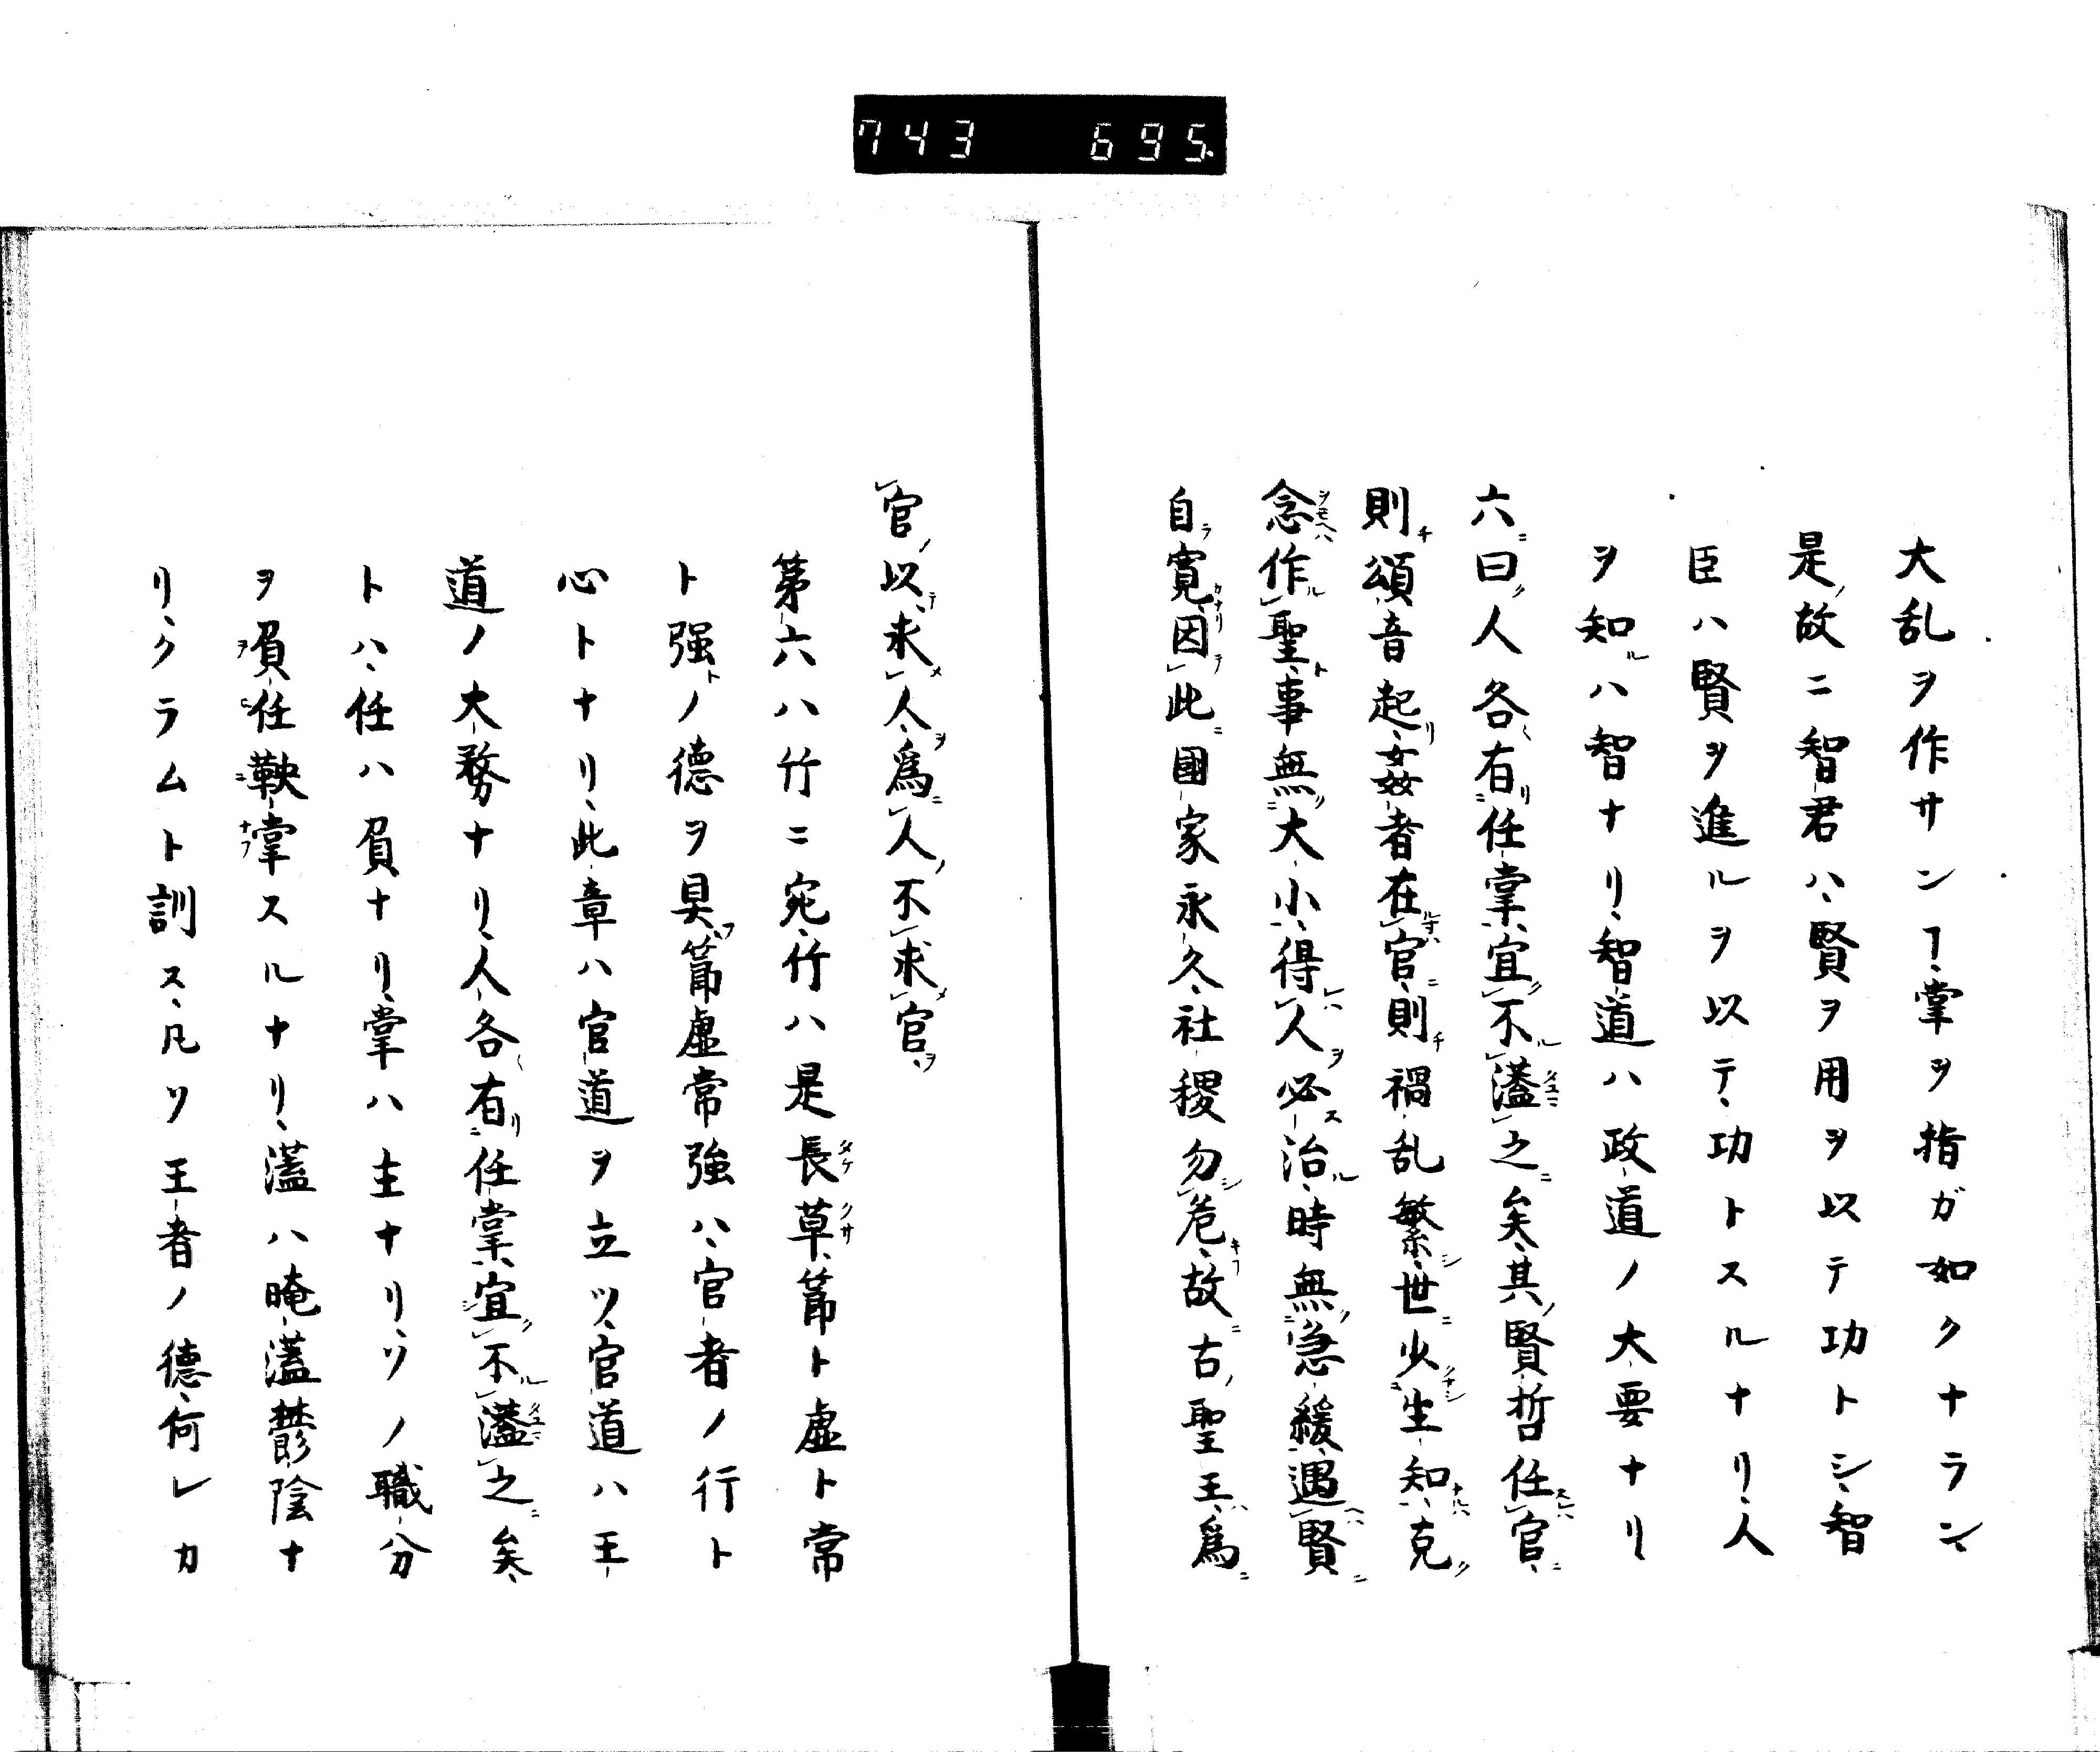 743 695
大乱ヲ作サンヿ、掌ヲ指ガ如クナラン、
是故ニ智君ハ、賢ヲ用ヲ以テ功トシ、智
臣ハ賢ヲ進ルヲ以テ、功トスルナリ、人
ヲ知ルハ智ナリ、智道ハ政道ノ大要ナリ
六曰人各有任掌、宜不濫之矣、其賢哲任官、
則頌音起、姦者在官、則禍乱繁、世少生知、克
念作聖、事無大小、得人必治、時無急緩、遇賢
自寛、因此國家永久、社稷勿危、故古聖王、爲
官以求人、爲人不求官、
第六ハ竹ニ宛、竹ハ是長草、節ト虚ト常
ト強トノ德ヲ具フ、節虚常強ハ、官者ノ行ト
心トナリ、此章ハ官道ヲ立ツ、官道ハ王
道ノ大務ナリ、人各有任掌、宜不濫之矣、
トハ、任ハ負ナリ、掌ハ主ナリ、ソノ職分
ヲ負任鞅掌スルナリ、濫ハ晻濫鬱陰ナ
リ、クラムト訓ス、凡ソ王者ノ德、何レカ